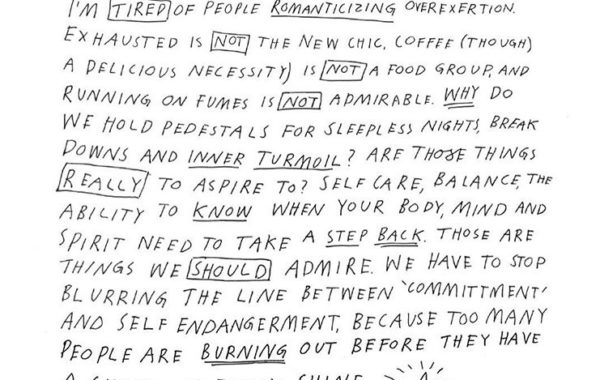 I'M TIRED OF PEOPLE ROMANTICIZING OVEREXERTION.
EXHAUSTED IS NOT THE NEW CHIC, COFFEE (THOUGH)
A DELICIOUS NECESSITY) IS NOT A FOOD GROUP, AND
RUNNING ON FUMES IS NOT ADMIRABLE. WHY DO
WE HOLD PEDESTALS FOR SLEEPLESS NIGHTS, BREAK
DOWNS AND INNER TURMOIL? ARE THOSE THINGS
REALLY TO ASPIRE TO? SELF CARE, BALANCE, THE
ABILITY TO KNOW WHEN YOUR BODY, MIND AND
SPIRIT NEED TO TAKE A STEP BACK. THOSE ARE
THINGS WE SHOULD ADMIRE. WE HAVE TO STOP
BLURRING THE LINE BETWEEN 'COMMITTMENT'
AND SELF ENDANGERMENT, BECAUSE TOO MANY
PEOPLE ARE BURNING OUT BEFORE THEY HAVE